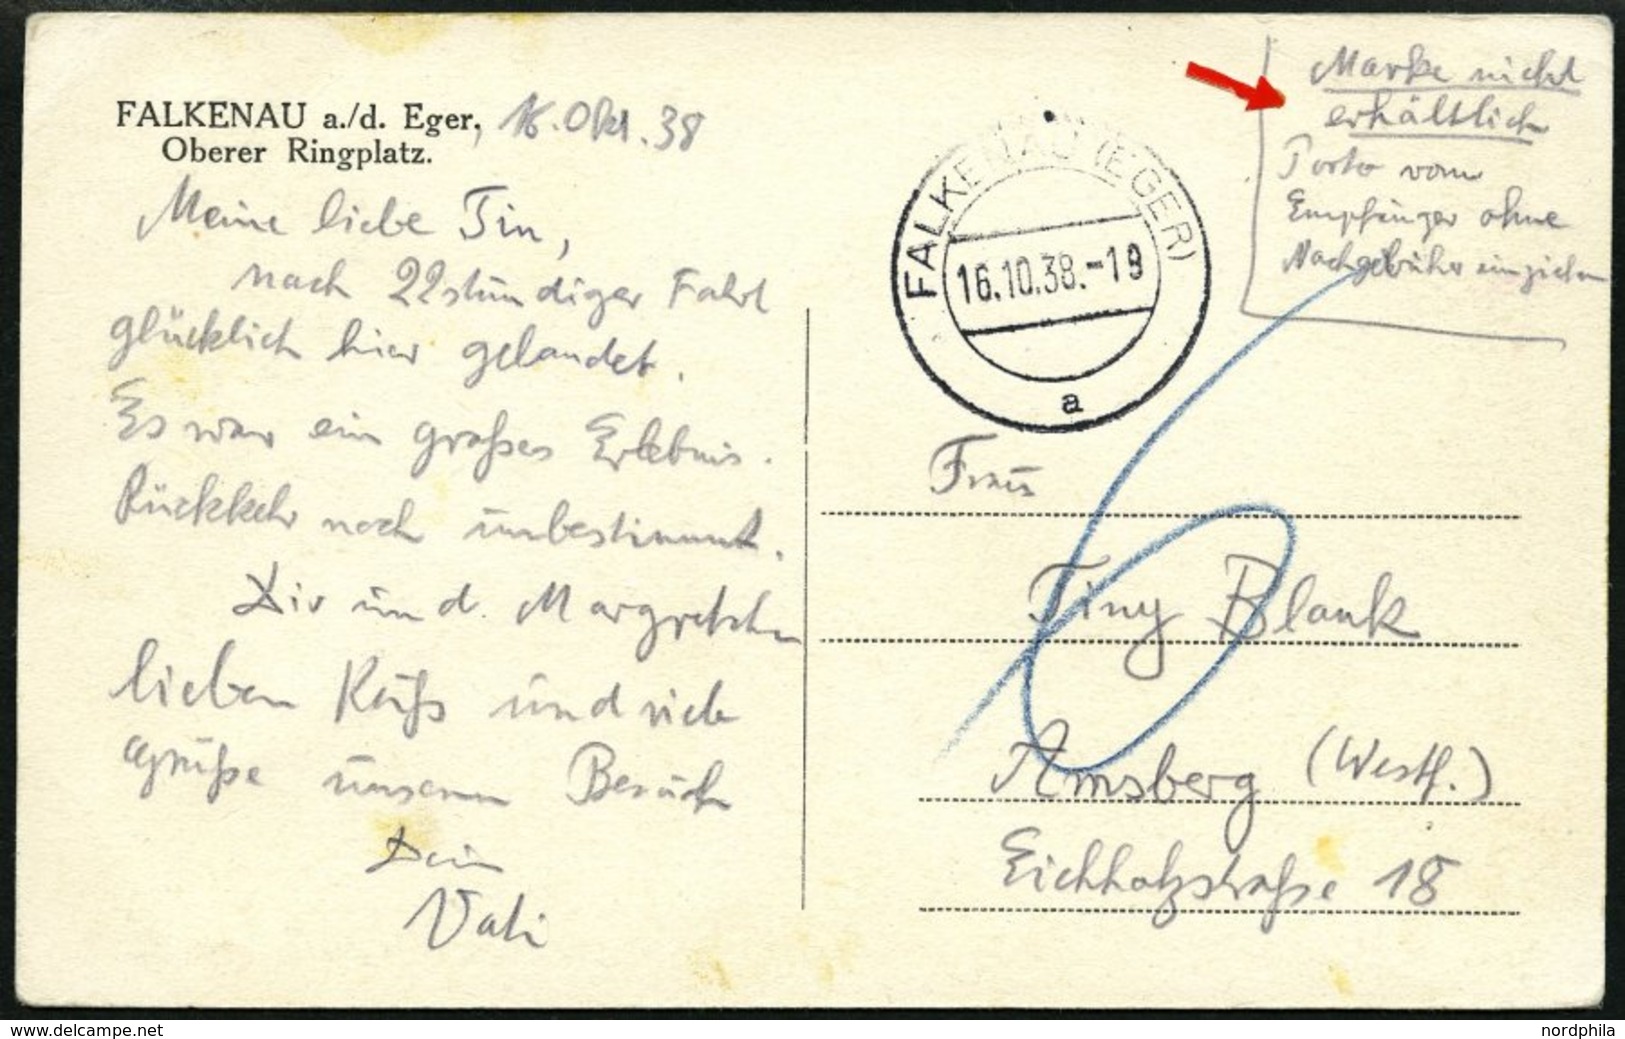 FALKENAU a./d. Eger, 16. Okt. 38
Oberer Ringplatz.
Meine liebe Tin,
nach 22stündiger Fahrt
glücklich hier gelandet.
Es war ein großes Erlebnis.
Rückkehr noch unbestimmt.
Dir und Margretchen
lieben Kuß und viele
Grüße unserem Besuch
Dein
Vati
Marke nicht
erhältlich
Porto vom
Empfänger ohne
Nachgebühr einziehen
FALKENAU (EGER)
16.10.38.-18
a
6
Frau
Tiny Blank
Arnsberg (Westf.)
Eichholzstraße 18
www.delcampe.net
nordphila